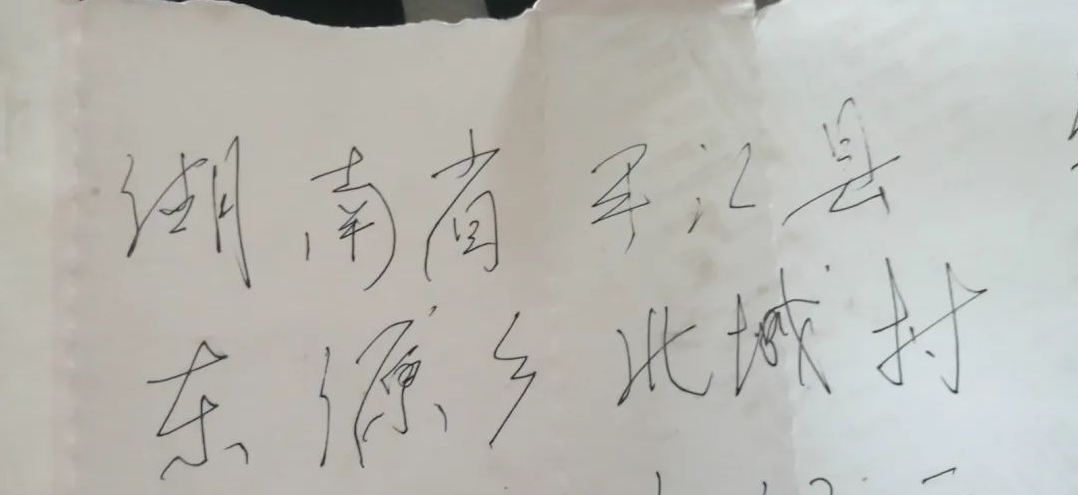 湖南省平江县
东源乡北城村